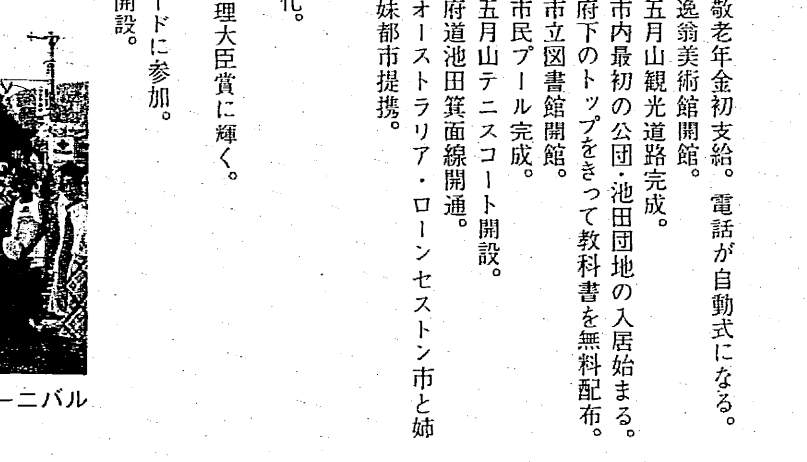 敬老年金初支給。電話が自動式になる。
逸翁美術館開館。
五月山観光道路完成。
市内最初の公団・池田団地の入居始まる。
府下のトップをきって教科書を無料配布。
市立図書館開館。
市民プール完成。
五月山テニスコート開設。
府道池田箕面線開通。
オーストラリア・ローンセストン市と姉
妹都市提携。
化。
理大臣賞に輝く。
ードに参加。
開設。
ーニバル